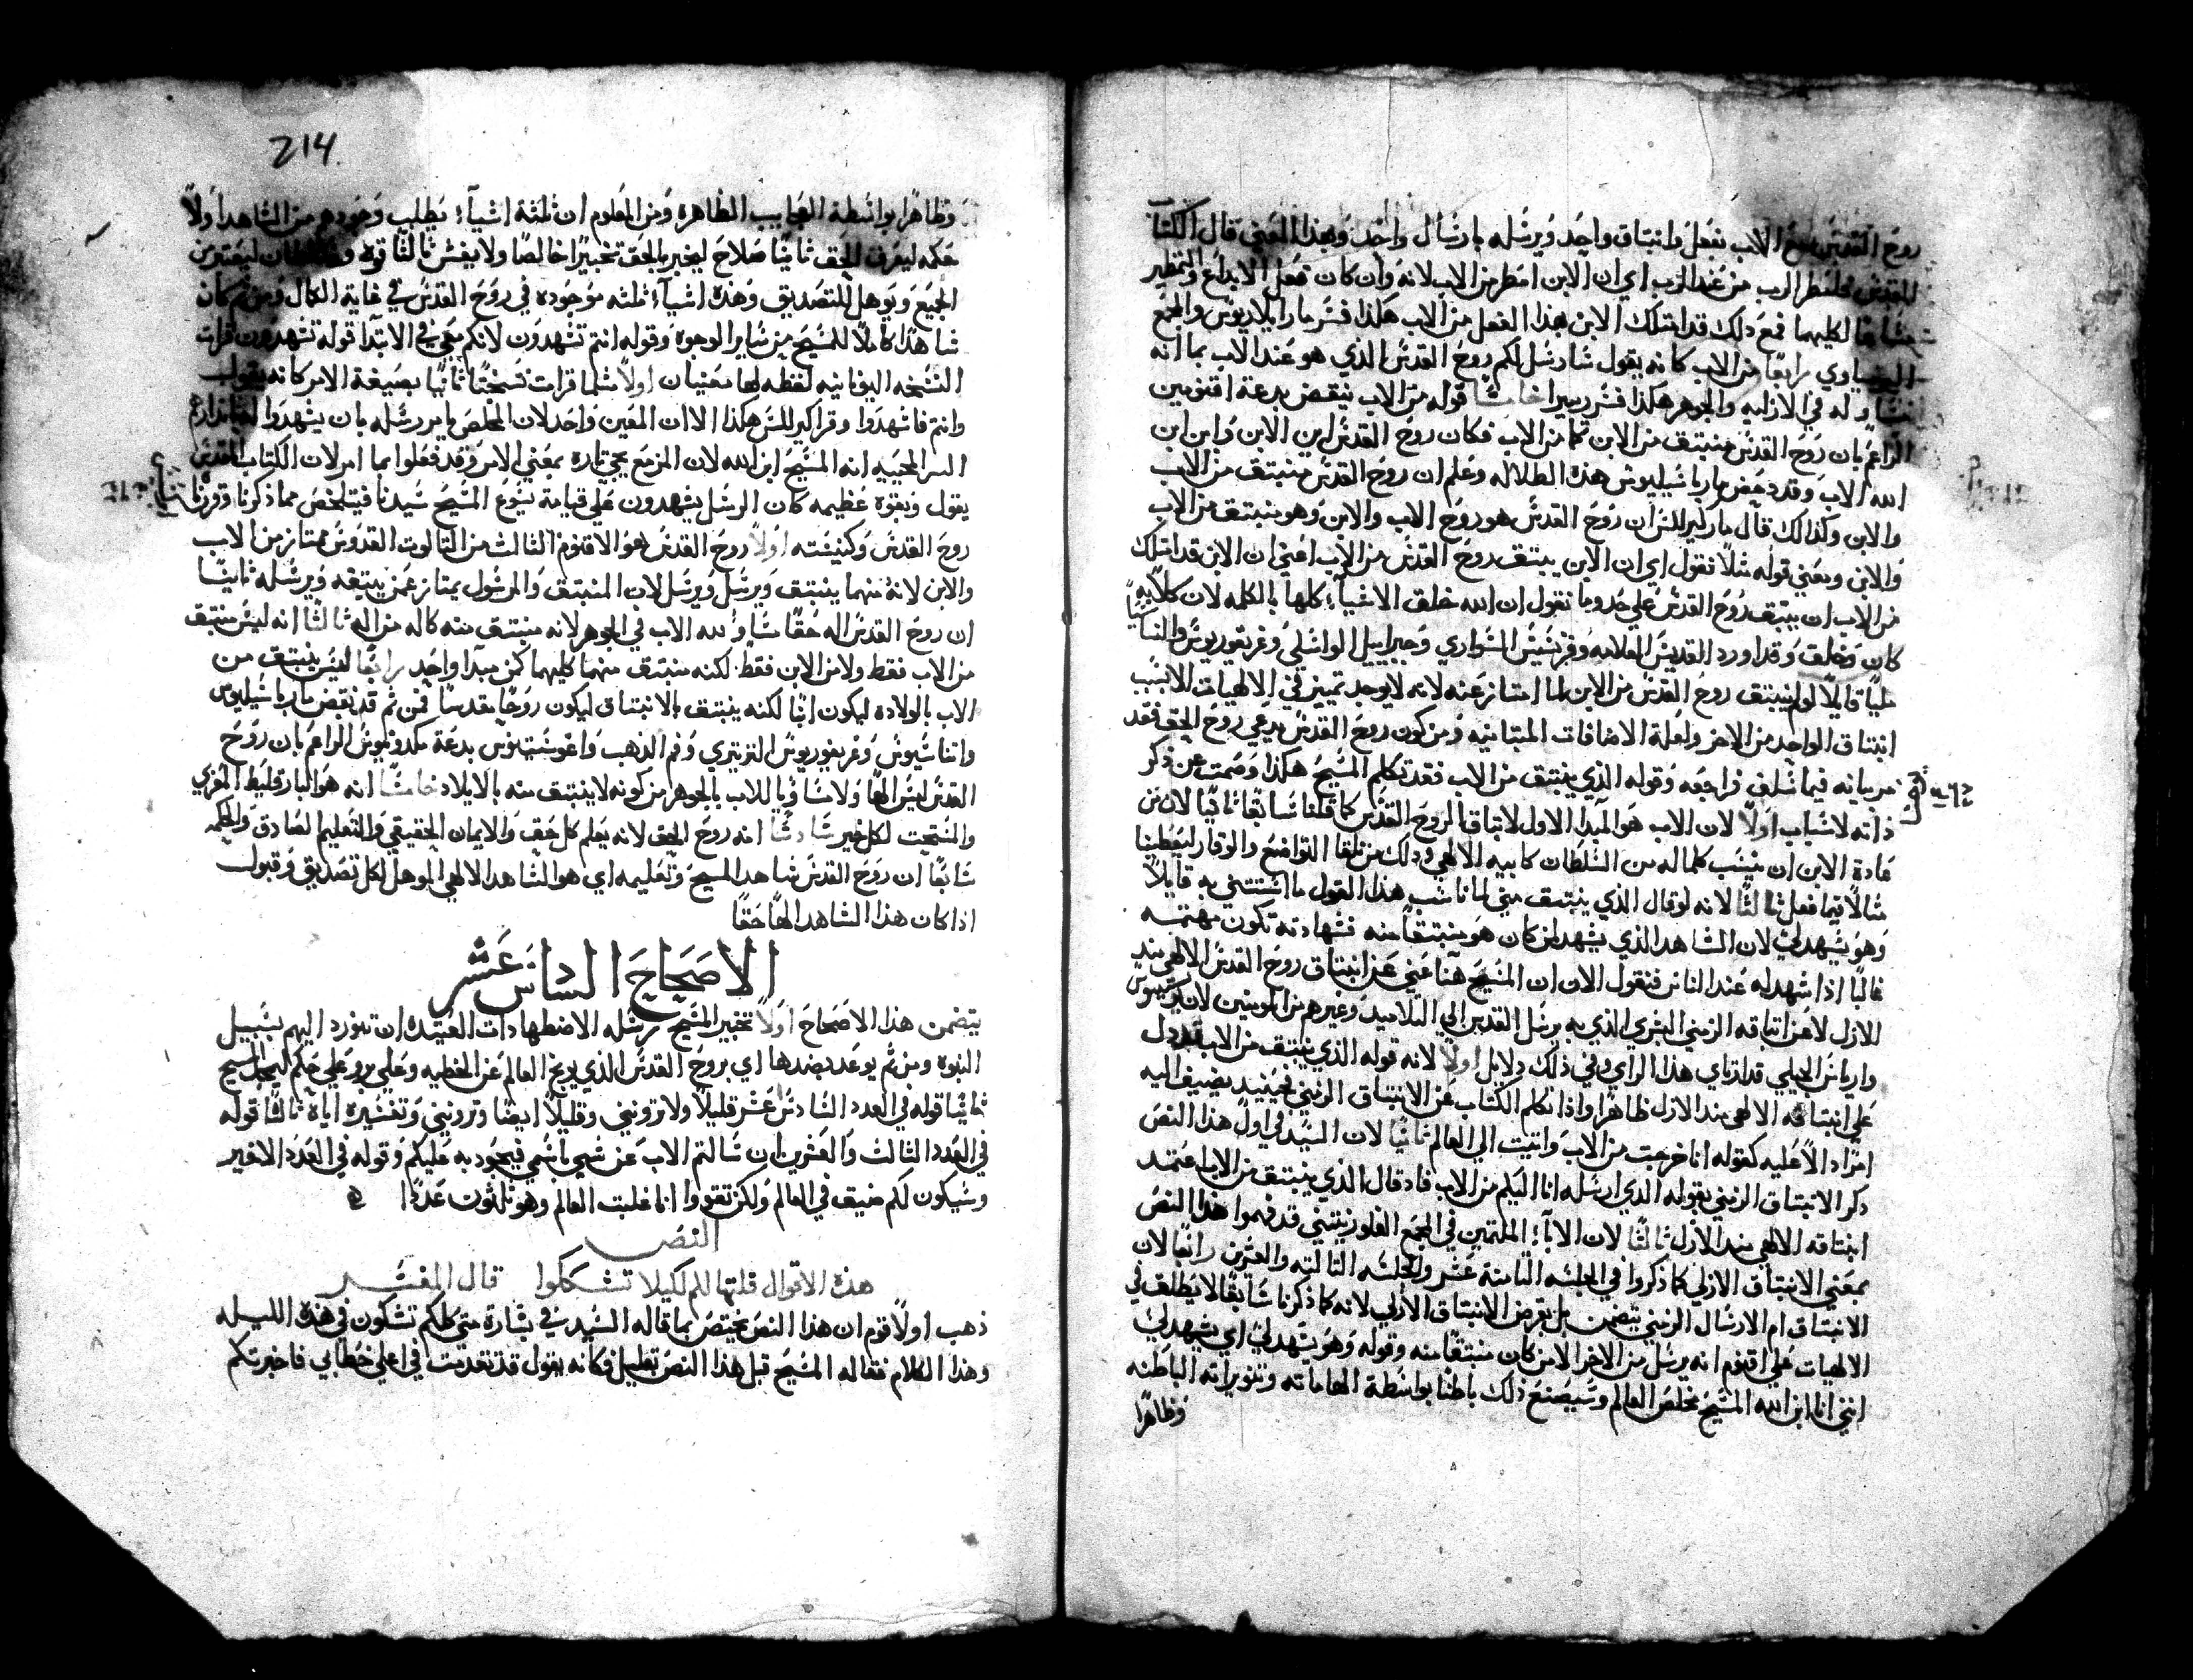 روح القدس مع الاب بفعل وانبتاق واحد ويرسله بارسال واحد وبهذا المعني قال الكتاب
المقدس فلمطر الرب من عند الرب اي ان الابن امطر من الاب لانه وان كان فعل الابداع والتمطير
لكليهما فمع ذلك قد امتلك الابن هذا الفعل من الاب هكذا فسر مار ايلاريوس والمجمع
رابعا من الاب كانه يقول سارسل لكم روح القدس الذي هو عند الاب بما انه
له في الازليه والجوهر هكذا فسر ريبيرا خامسا قوله من الاب ينقض بدعة اقنومين
الزاعم بان روح القدس منبتق من الابن كما من الاب فكان روح القدس ابن الابن وابن ابن
الله الاب وقد دحض مار باسيليوس هذه الطلاله وعلم ان روح القدس منبتق من الاب
والابن وكذلك قال مار كيرللس ان روح القدس هو روح الاب والابن وهو منبتق من الاب
والابن ومعني قوله مثلا نقول اي ان الابن يبتق روح القدس من الاب اعني ان الابن قد امتلك
من الاب ان يبتق روح القدس علي حد وما نقول ان الله خلق الاشيآء كلها بالكلمه لان كلا به
كان وخلق وقد اورد القديس العلامه وفرنسيس السواري وجبراييل الواسلي وغريغوريوس والنسا
مليا قايلا لو لم ينبتق روح القدس من الابن لما امتاز عنه لانه لا يوجد تمييز في الالهيات الا لسبب
انبتاق الواحد من الاخر ولعلة الاضافات المتباينه ومن كون روح القدس يدعي روح الحق فقد
مر بيانه فيما سلف فراجعه وقوله الذي ينبتق من الاب فقد تكلم المسيح هكذا وصمت عن ذكر
ذاته لاسباب اولا لان الاب هو المبدا الاول لانبتاق الروح القدس كما قلنا سابقا ثانيا لان من
عادة الابن ان ينسب كلما له من السلطان كابيه الالهي وذلك من تلقا التواضع والوقار ليعطينا
مثالا فيما فعل ثالثا لانه لو قال الذي ينبتق مني لما ناسب هذا القول ما استتني به قايلا
وهو يشهد لي لان الشاهد الذي يشهد لمن كان هو منبتقا منه فشهادته تكون مهتمه
غالبا اذا شهد له عند الناس فنقول الان ان المسيح هنا عني عن انبتاق روح القدس الالهي منذ
الازل لا عن انبتاقه الزمني البشري الذي به يرسل القديس الي التلاميذ وغيرهم من المومنين لان
واريناس الجبلي قد ارتاي هذا الراي وفي ذلك دلايل اولا لانه قوله الذي ينبتق من الاب تدل
علي انبتاقه الالهي منذ الازل ظاهرا واذا تكلم الكتاب عن الانبتاق الزمني فحينيد يضيف اليه
امرا دالا عليه كقوله انا خرجت من الاب واتيت الي العالم ثانيا لان السيد في اول هذا النص
ذكر الانبتاق الزمني بقوله الذي ارسله انا اليكم من الاب فاد قال الذي ينبتق من الاب
انبتاقه الالهي منذ الازل ثالثا لان الابآء الملتمين في المجمع الفلورنتيني قد فهموا هذا النص
بمعني الانبتاق الازلي كما ذكروا في الجلسه الثامنة عشر والجلسه الثالثه والعشرين رابعا لان
الانبتاق ام الارسال الزمني يتضمن بل يفرض الانبتاق الازلي لانه كما ذكرنا سابقا لا يطلق في
الالهيات علي اقنوم انه يرسل من الاخر الا من كان منبتقا منه وقوله وهو يشهد لي اي يشهد لي
انني انا ابن الله المسيح مخلص العالم وسيصنع ذلك باطنا بواسطة الهاماته وتنويراته الباطنه
وظاهرا
214
وظاهرا بواسطة العجايب الظاهره ومن المعلوم ان ثلثة اشيآء يطلب وجودهم من الشاهد اولا
حكمه ليعرف الحق ثانيا صلاح ليخبر بالحق تخبيرا خالصا ولا يغش ثالثا قوه وسلطان ليعتبر من
الجميع ويوهل للتصديق وهذه اشيآء ثلثه موجوده في روح القدس في غاية الكمال ومن ثم كان
شاهدا كاملا للمسيح من ساير الوجوه وقوله انتم تشهدون لانكم معي في الابتدا قوله تشهدون قرات
النسخه اليونانيه لفظه لها معنيان اولا مثلما قرات نسختنا ثانيا بصيغة الامر كانه يقول
وانتم فاشهدوا وقرا كيرللس هكذا الا ان المعنيين واحد لان المخلص يامر رسله بان يشهدوا
البرا لمحبيه انه المسيح ابن الله لان المزمع يجي تاره بمعني الامر وقد فعلوا بما امر لان الكتاب المقدس
يقول وبقوه عظيمه كان الرسل يشهدون علي قيامة يسوع المسيح سيدنا فيتلخص مما ذكرنا
روح القدس وكينيته اولا روح القدس هو الاقنوم الثالث من الثالوت القدوس ممتاز من الاب
والابن لانه منهما ينبتق ويرسل ويرسل لان المنبتق والمرسول يمتاز عمن يبتقه ويرسله ثانيا
ان روح القدس اله حقا مساو لله الاب في الجوهر لانه منبتق منه كاله من اله ثالثا انه ليس منبتق
من الاب فقط ولا من الابن فقط لكنه منبتق منهما كليهما كمن مبدا واحد رابعا ليس ينبتق من
الاب بالولاده ليكون ابنا لكنه ينبتق بالانبتاق ليكون روحا مقدسا فمن ثم قد نقض مار باسيليوس
واتناسيوس وغريغوريوس النزينزي وفم الذهب واغوستينوس بدعة مكدونيوس الزاعم بان روح
القدس ليس الها ولا مساويا للاب بالجوهر من كونه لا ينبتق منه بالايلاد خامسا انه هو البارقليط المعزي
والمنتجت لكل خير سادسا انه روح الحق لانه يعلم كل حق والايمان الحقيقي والتعليم الصادق والحكمه
سابعا ان روح القدس شاهد المسيح وتعليمه اي هو الشاهد الالهي الموهل لكل تصديق وقبول
اذا كان هذا الشاهد الها حقا
الاصحاح السادس عشر
يتضمن هذا الاصحاح اولا تخبير المسيح لرسله الاضطهادات العتيده ان تورد اليهم بسبيل
النبوه ومن ثم يوعد بضدها اي بروح القدس الذي يوبخ العالم عن الخطيه وعلي بر وعلي حكم
ثانيا قوله في العدد السادس عشر قليلا ولا ترونني وقليلا ايضا وترونني وتفسيره اياه ثالثا قوله
في العدد الثالث والعشرين ان سالتم الاب عن شي باسمي فيجود به عليكم وقوله في العدد الاخير
وسيكون لكم ضيق في العالم ولكن تقووا انا غلبت العالم وهو ثلثون عددا
النص
هذه الاقوال قلتها لكم لكيلا تشكوا قال المفسر
ذهب اولا قوم ان هذا النص يختص بما قاله السيد في بشارة متي كلكم تشكون في هذه الليله
وهذا الكلام فقاله المسيح قبل هذا النص بقليل فكانه يقول قد تقدمت في اعلي خطابي فاخبرتكم